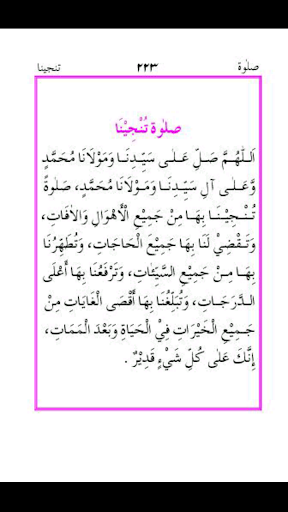 صلوٰة ٢٢٣ تنجينا
صلوٰة تُنْجِيْنَا
اَللّٰهُمَّ صَلِّ عَلٰى سَيِّدِنَا وَمَوْلَانَا مُحَمَّدٍ
وَّعَلٰى آلِ سَيِّدِنَا وَمَوْلَانَا مُحَمَّدٍ، صَلٰوةً
تُنْجِيْنَا بِهَا مِنْ جَمِيْعِ الْأَهْوَالِ وَالْاٰفَاتِ،
وَتَقْضِيْ لَنَا بِهَا جَمِيْعَ الْحَاجَاتِ، وَتُطَهِّرُنَا
بِهَا مِنْ جَمِيْعِ السَّيِّئَاتِ، وَتَرْفَعُنَا بِهَا أَعْلَى
الدَّرَجَاتِ، وَتُبَلِّغُنَا بِهَا أَقْصَى الْغَايَاتِ مِنْ
جَمِيْعِ الْخَيْرَاتِ فِيْ الْحَيَاةِ وَبَعْدَ الْمَمَاتِ،
إِنَّكَ عَلٰى كُلِّ شَيْءٍ قَدِيْرٌ .